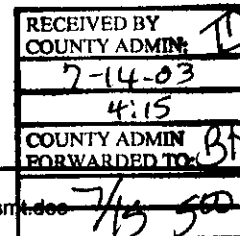 RECEIVED BY
COUNTY ADMIN:
7-14-03
4:15
COUNTY ADMIN
FORWARDED TO: BH
smt.doc 7/15 500